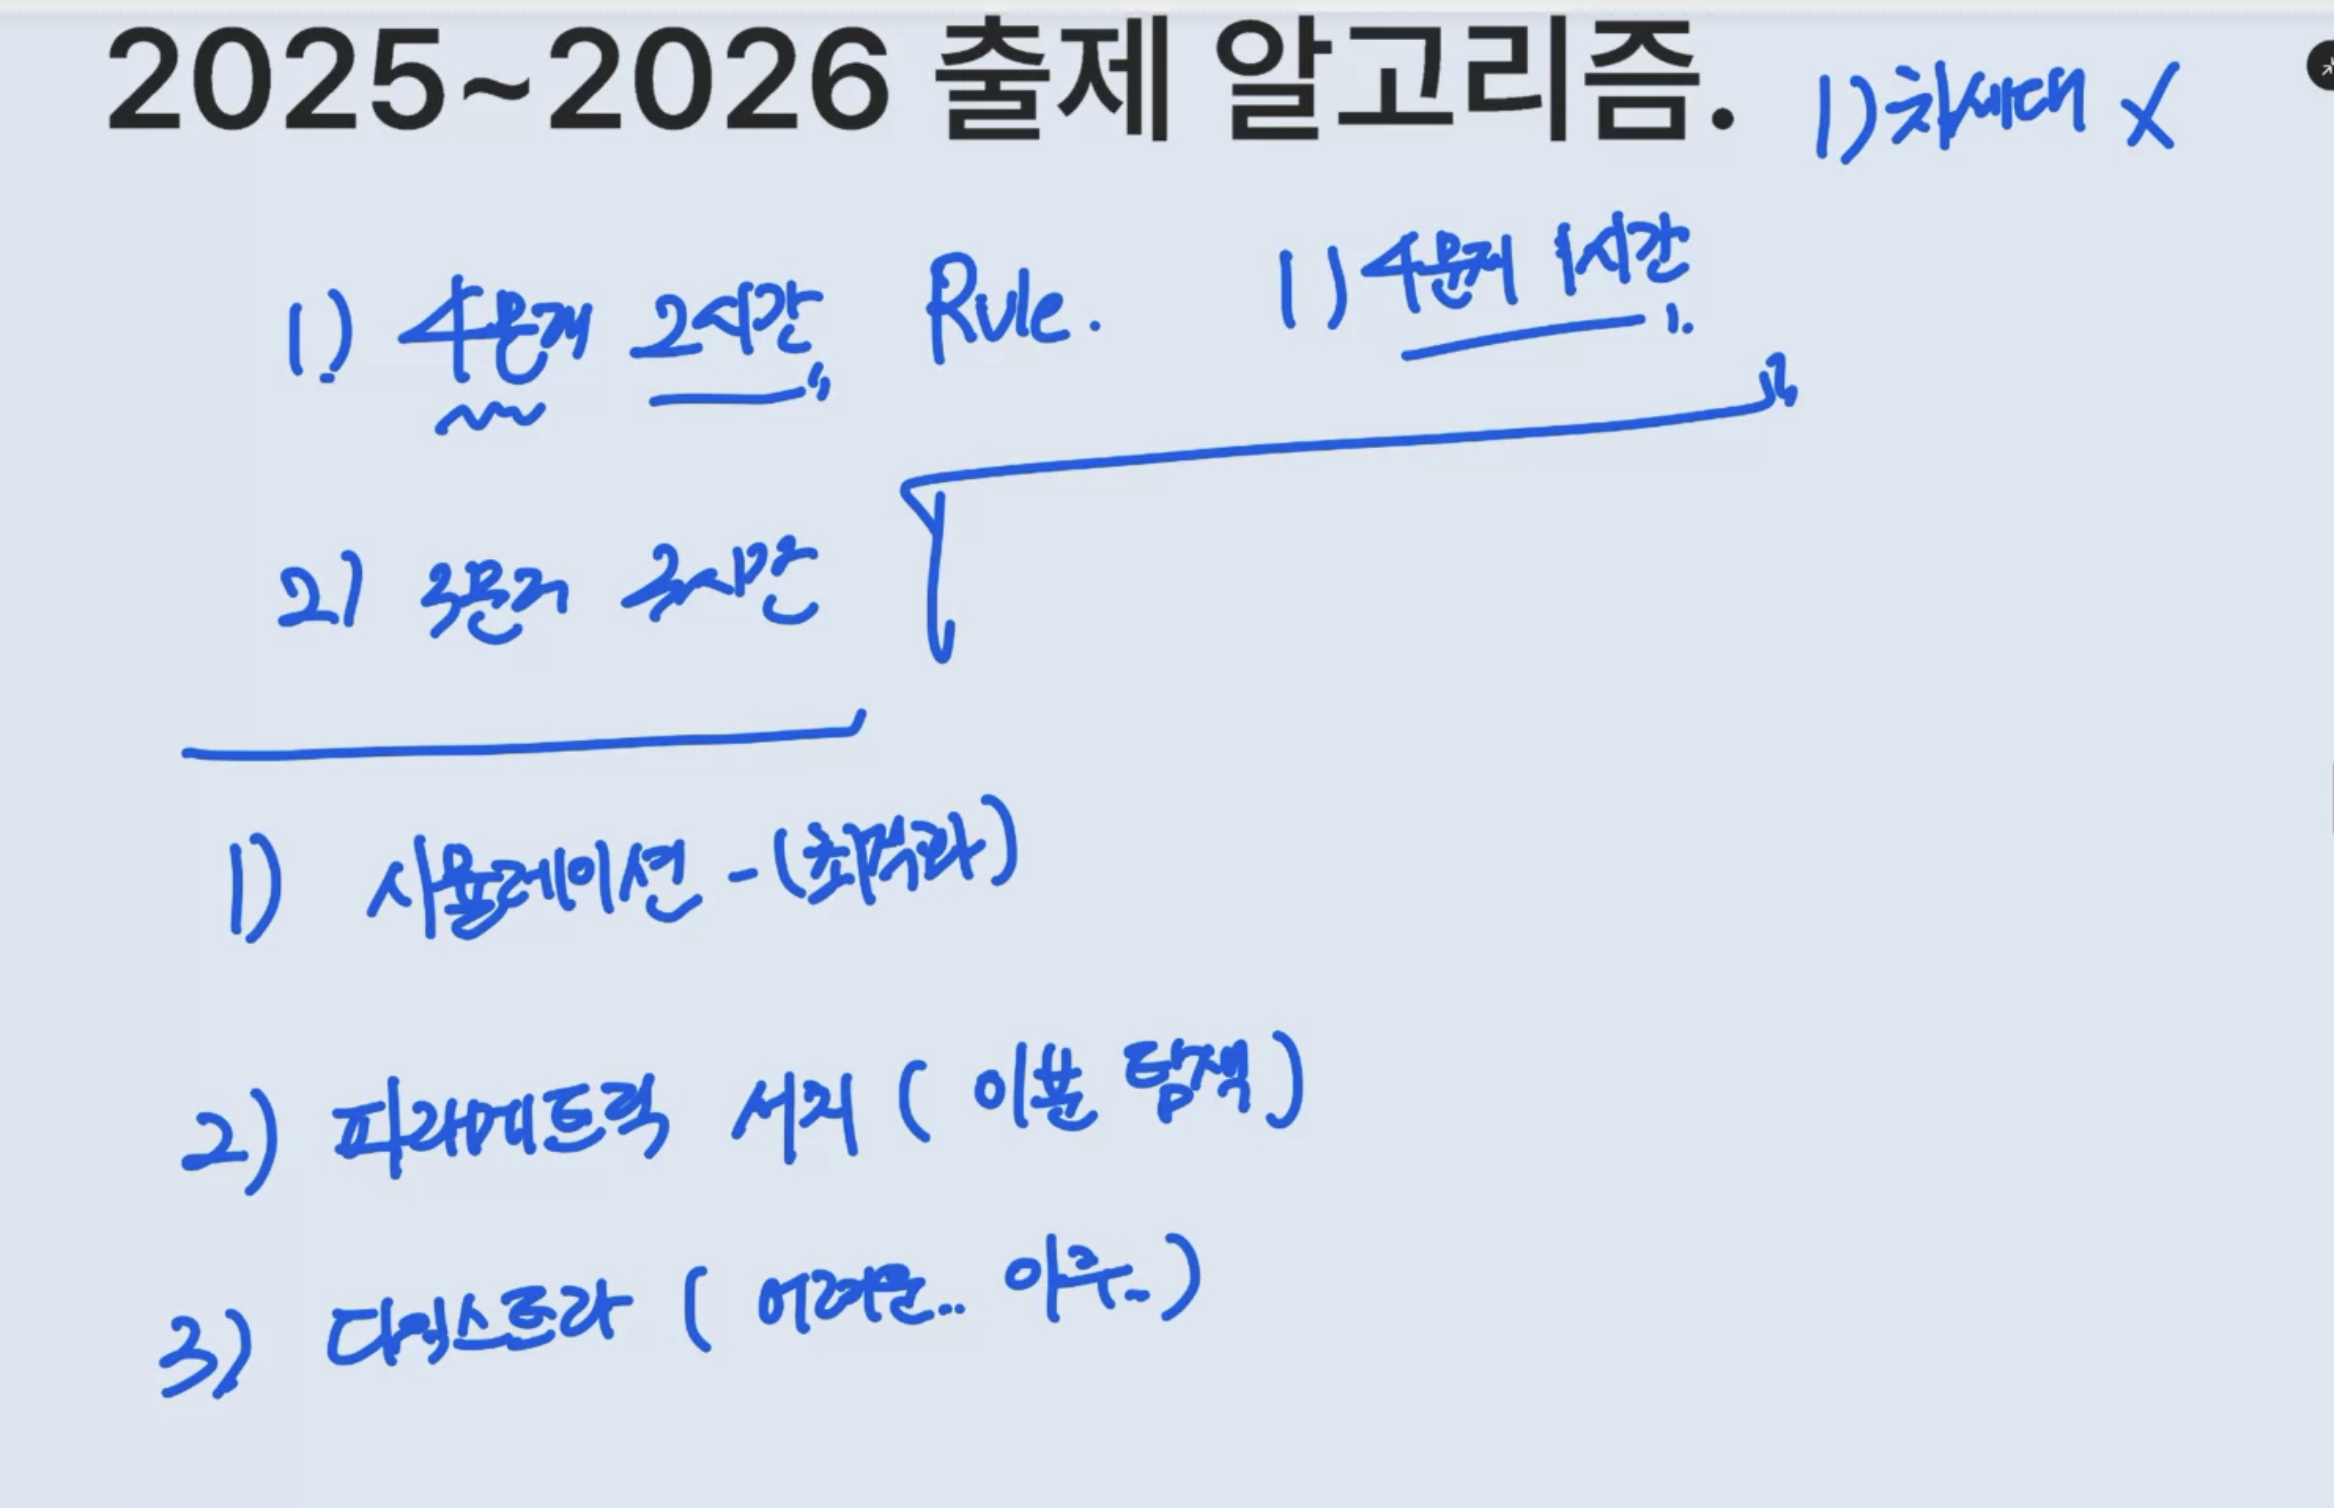 2025~2026 출제 알고리즘. 1) 차세대 X
1) 4문제 2시간 Rule. 1) 4문제 1시간
2) 3문제 3시간
1) 시뮬레이션 - (최적화)
2) 파라메트릭 서치 ( 이분 탐색 )
3) 다익스트라 ( 어려운.. 아주.. )